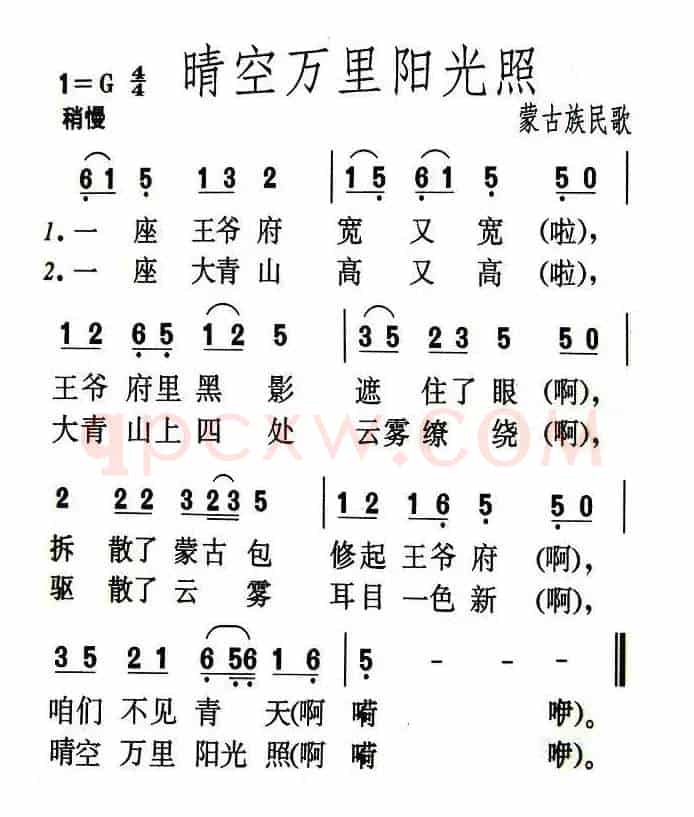 晴空万里阳光照
1=G 4/4
稍慢
蒙古族民歌
6̣ 1 5̣ 1 3 2 | 1 5̣ 6̣ 1 5̣ 5̣ 0 |
1. 一 座 王爷 府 宽 又 宽 (啦),
2. 一 座 大青 山 高 又 高 (啦),
1 2 6̣ 5̣ 1 2 5 | 3 5 2 3 5 5 0 |
王爷 府里 黑 影 遮 住了 眼 (啊),
大青 山上 四 处 云雾 缭 绕 (啊),
2 2 2 3 2 3 5 | 1 2 1 6̣ 5̣ 5̣ 0 |
拆 散了 蒙古 包 修起 王爷 府 (啊),
驱 散了 云 雾 耳目 一色 新 (啊),
3 5 2 1 6̣ 5̣ 6̣ 1 6̣ | 5̣ - - - ‖
咱们 不见 青 天(啊 嗬 咿)。
晴空 万里 阳光 照(啊 嗬 咿)。
qpcxw.com